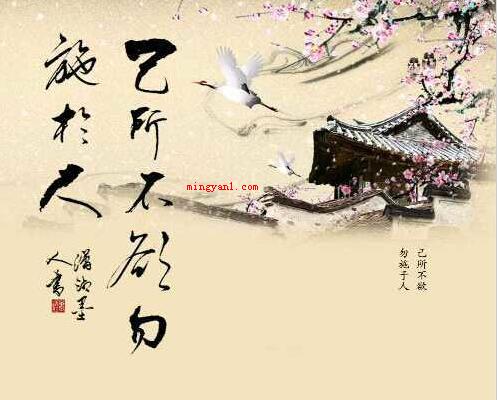 己所不欲勿
施於人
瀟湘墨
人書
mingyan1.com
己所不欲
勿施于人